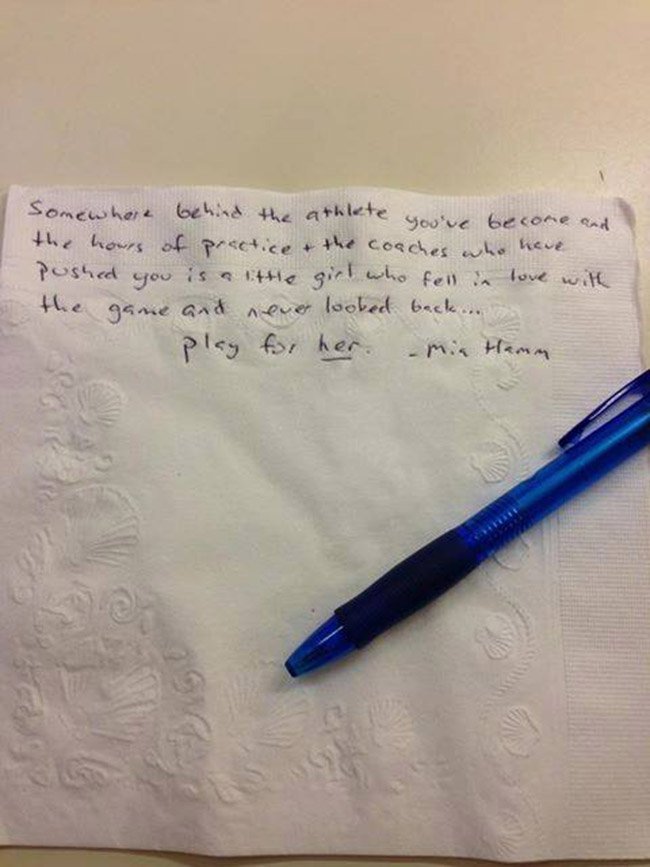 Somewhere behind the athlete you've become and
the hours of practice + the coaches who have
pushed you is a little girl who fell in love with
the game and never looked back...
play for her. - Mia Hamm